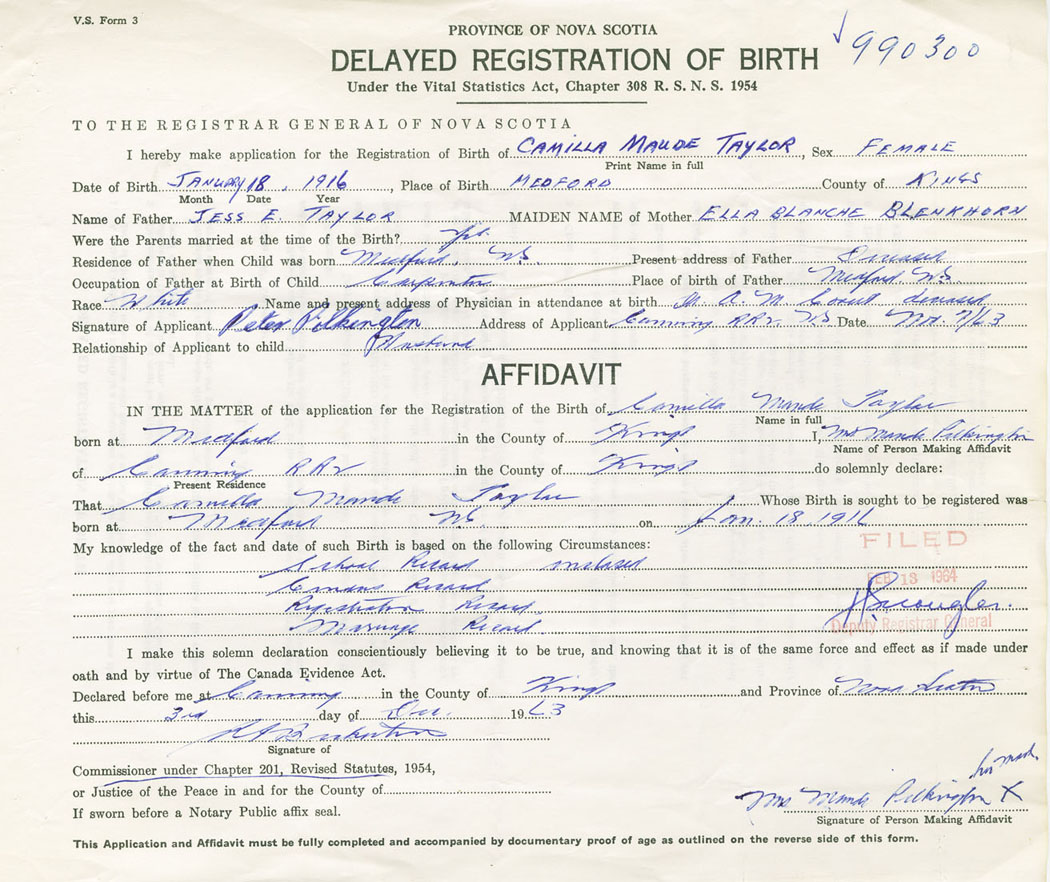 V.S. Form 3
990300
PROVINCE OF NOVA SCOTIA
DELAYED REGISTRATION OF BIRTH
Under the Vital Statistics Act, Chapter 308 R. S. N. S. 1954
TO THE REGISTRAR GENERAL OF NOVA SCOTIA
I hereby make application for the Registration of Birth of CAMILLA MAUDE TAYLOR, Sex FEMALE
Print Name in full
Date of Birth JANUARY 18, 1916, Place of Birth MEDFORD County of KINGS
Month Date Year
Name of Father JESS E. TAYLOR MAIDEN NAME of Mother ELLA BLANCHE BLENKHORN
Were the Parents married at the time of the Birth? yes
Residence of Father when Child was born Medford, NS. Present address of Father Deceased
Occupation of Father at Birth of Child Carpenter Place of birth of Father Medford NS
Race White Name and present address of Physician in attendance at birth A. M. deceased
Signature of Applicant Peter Pilkington Address of Applicant Canning RR2 NS Date 7/63
Relationship of Applicant to child Husband
AFFIDAVIT
IN THE MATTER of the application for the Registration of the Birth of Camilla Maude Taylor
Name in full
born at Medford in the County of Kings I, Mrs Maude Pilkington
Name of Person Making Affidavit
of Canning RR2 in the County of Kings do solemnly declare:
Present Residence
That Camilla Maude Taylor Whose Birth is sought to be registered was
born at Medford NS. on Jan. 18 1916
My knowledge of the fact and date of such Birth is based on the following Circumstances:
School Record inclosed
Census Record
Registration Record
Marriage Record
FILED
FEB 13 1964
Deputy Registrar General
I make this solemn declaration conscientiously believing it to be true, and knowing that it is of the same force and effect as if made under
oath and by virtue of The Canada Evidence Act.
Declared before me at Canning in the County of Kings and Province of Nova Scotia
this 3rd day of Dec. 1963
Signature of
Commissioner under Chapter 201, Revised Statutes, 1954,
or Justice of the Peace in and for the County of
If sworn before a Notary Public affix seal.
her mark
Mrs Maude Pilkington X
Signature of Person Making Affidavit
This Application and Affidavit must be fully completed and accompanied by documentary proof of age as outlined on the reverse side of this form.